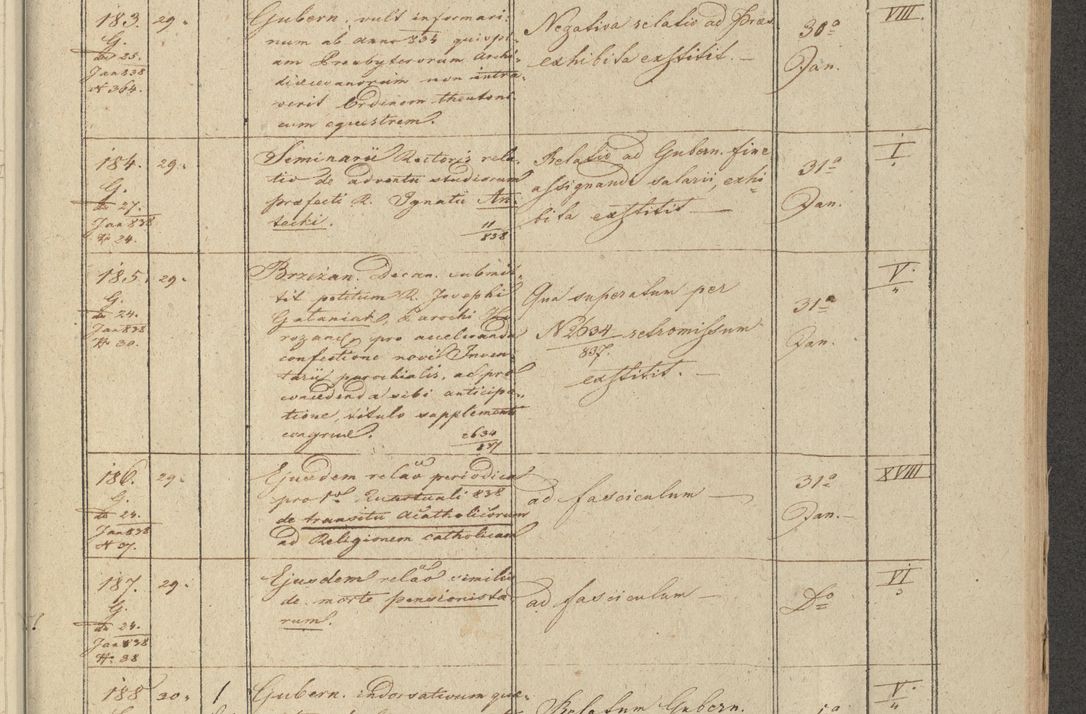 183. 29. Gubern. vult informari:
G. num ab anno 834 quispi-
de 25. am Presbyterorum Archi-
Jan 838 dioecesanorum non intra-
N 364. verit Ordinem theutoni-
cum equestrem.
Negativa relatio ad Præs
exhibita exstitit. —
30a
Jan.
VIII.
184. 29. Seminarii Rectoris rela-
G. tio de adventu studiorum
de 27. præfecti R. Ignatii An-
Jan 838 tecki.
N 24. 11/838
Relatio ad Gubern. fine
assignandi salarii, exhi-
bita exstitit —
31a
Jan.
I
185. 29. Brzezan. Decan. submit-
G. tit petitum R. Josephi
de 24. Gataniak, Parochi
Jan 838 pro acceleranda
N 30. confectione novi Inven-
tarii parochialis, ac pro
concedenda sibi anticipa-
tione, titulo supplementi
congruæ. 2634/837
Qua superatum per
N 2634/837. retromissum
exstitit. —
31a
Jan.
V./4
186. 29. Ejusdem relao periodica
G. pro 1o Quartuali 838
de 24. de transitu acatholicorum
Jan 838 ad Religionem catholicam
N 37.
ad fasciculum —
31a
Jan. —
XVIII
187. 29. Ejusdem relao similis
G. de morte pensionista-
de 24. rum.
Jan 838
N. 38
ad fasciculum —
Do
VI/3
188 30. 1 Gubern. indorsativum quæ-
Relatum Gubern.
V./4